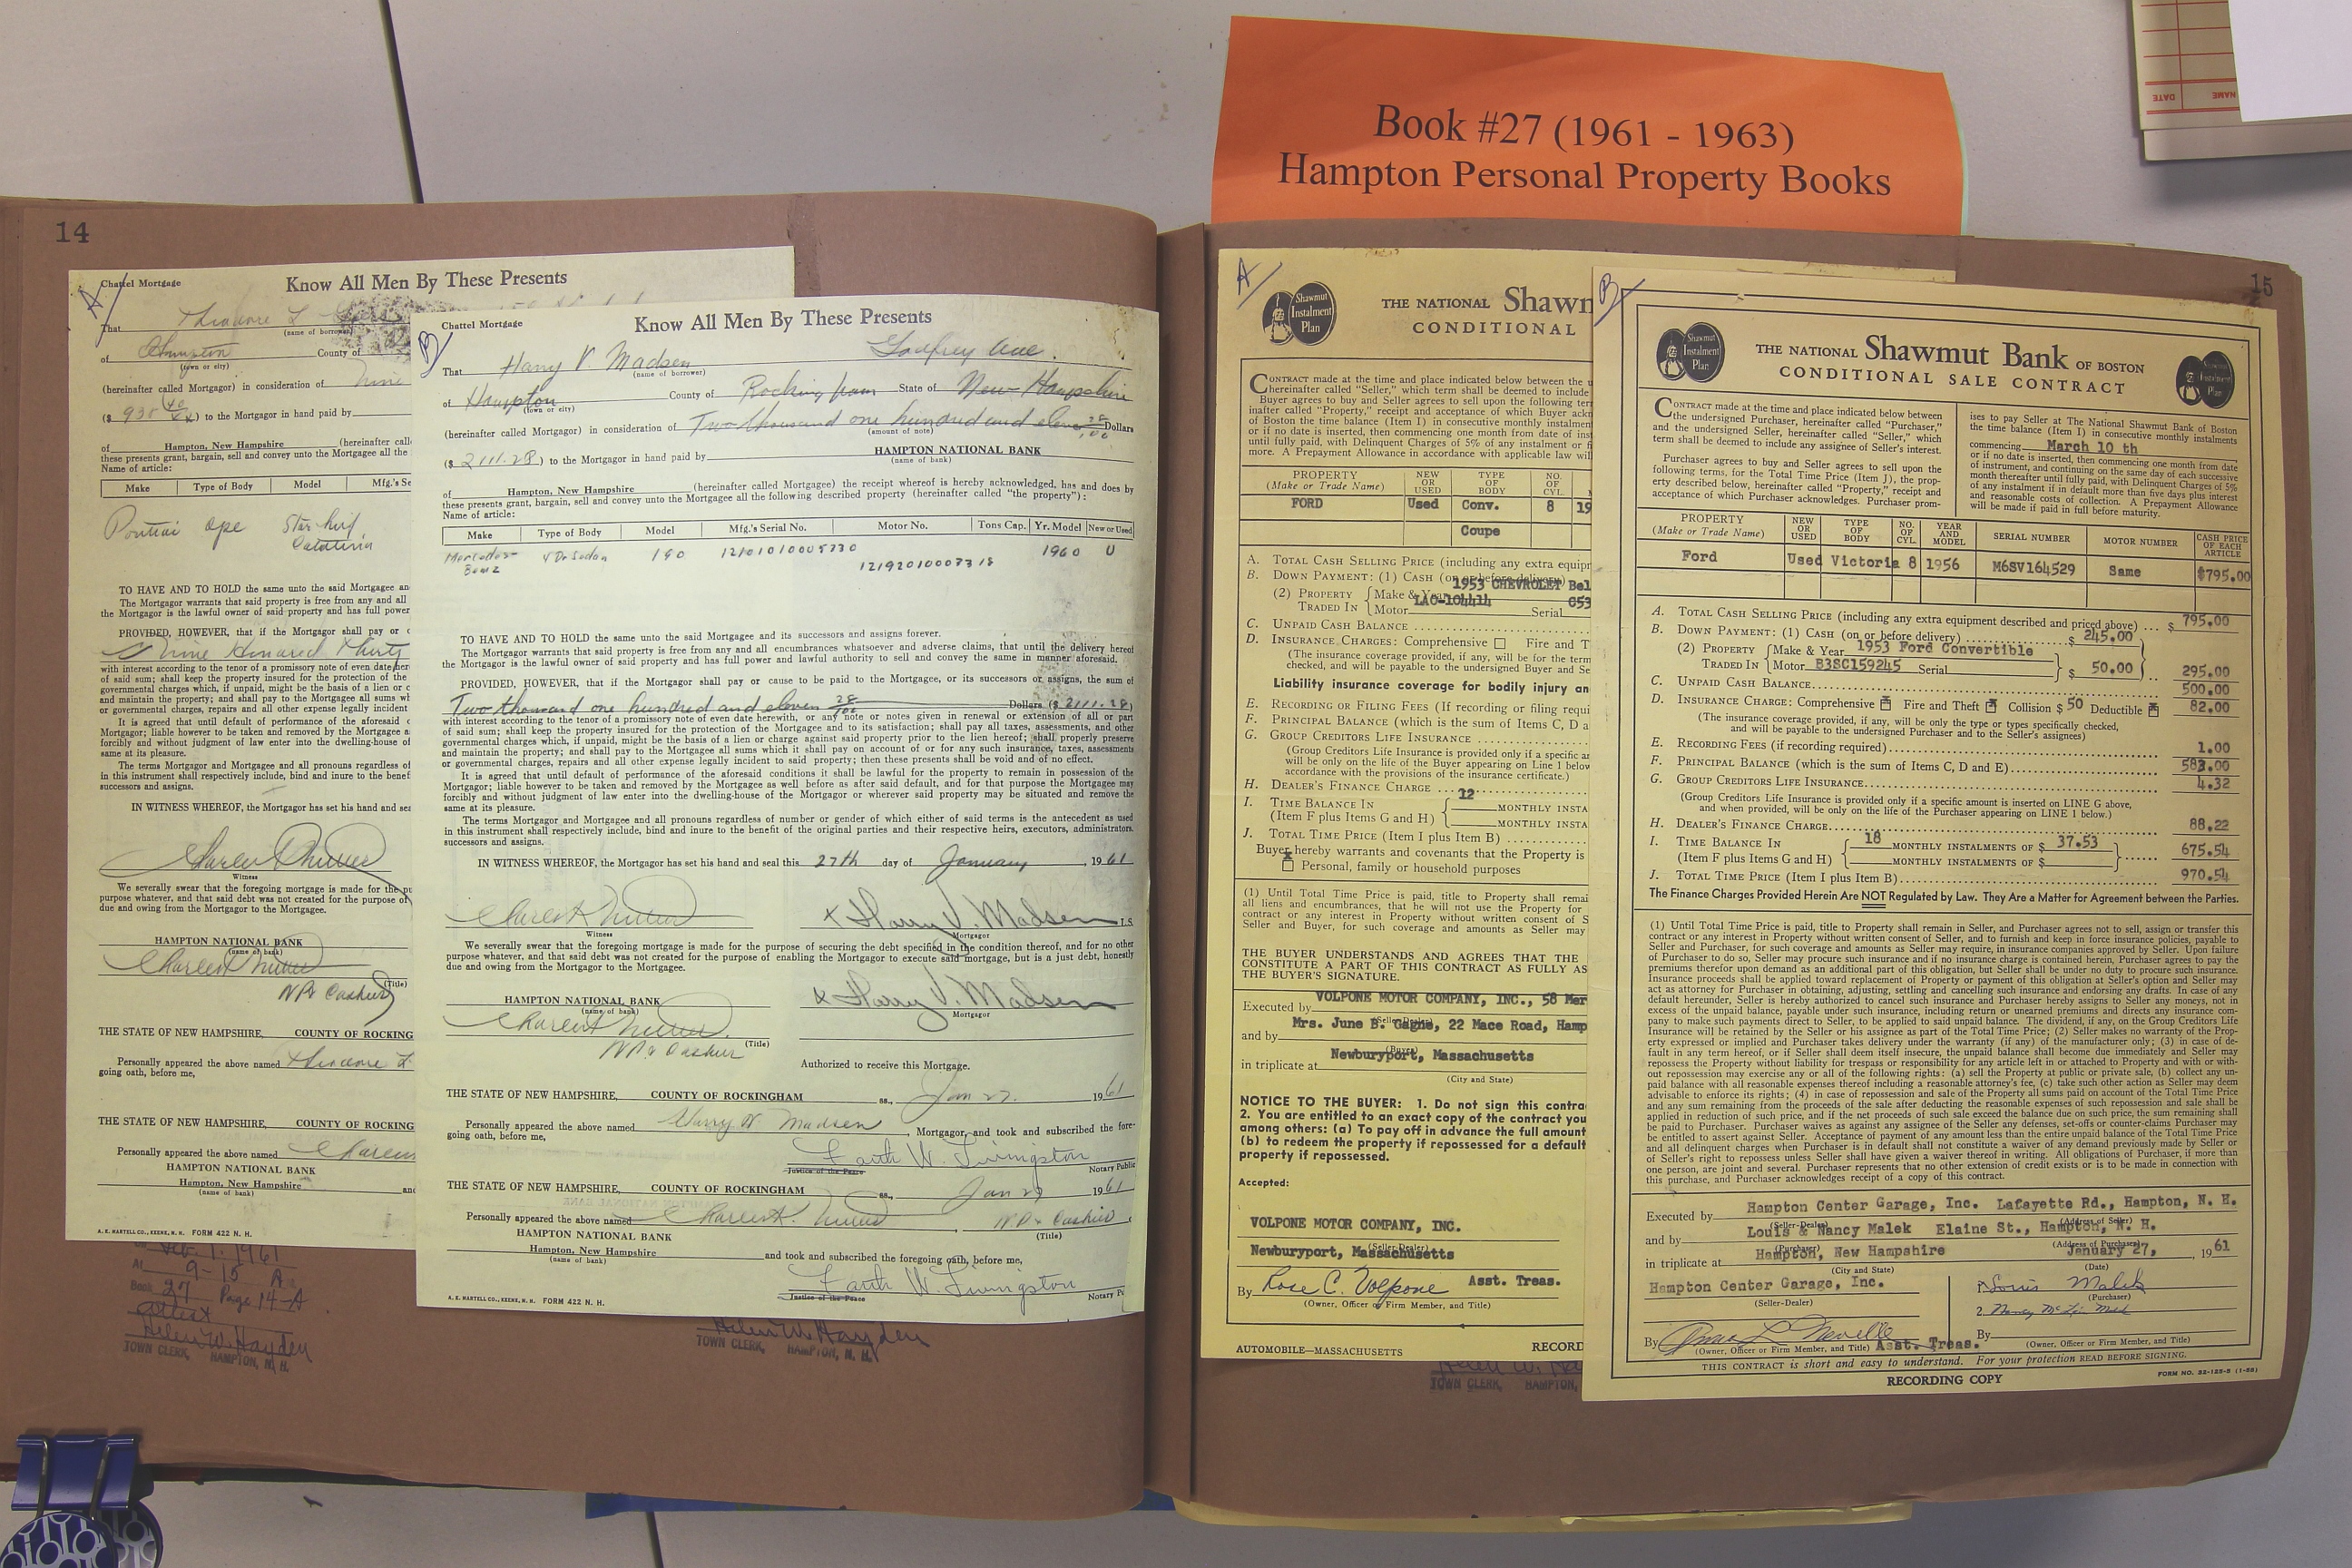 Book #27 (1961 - 1963)
Hampton Personal Property Books
DATE
NAME
14
A/
Chattel Mortgage
Know All Men By These Presents
That Theodore L
(name of borrower)
of Hampton County of
(town or city)
(hereinafter called Mortgagor) in consideration of Nine
($ 938 40/xx) to the Mortgagor in hand paid by
of Hampton, New Hampshire (hereinafter call
these presents grant, bargain, sell and convey unto the Mortgagee all the
Name of article:
Make Type of Body Model Mfg.'s Se
Pontiac cpe Star chief
Catalina
TO HAVE AND TO HOLD the same unto the said Mortgagee an
The Mortgagor warrants that said property is free from any and all
the Mortgagor is the lawful owner of said property and has full power
PROVIDED, HOWEVER, that if the Mortgagor shall pay or c
Nine Hundred Thirty
with interest according to the tenor of a promissory note of even date her
of said sum; shall keep the property insured for the protection of the
governmental charges which, if unpaid, might be the basis of a lien or c
and maintain the property; and shall pay to the Mortgagee all sums wh
or governmental charges, repairs and all other expense legally incident
It is agreed that until default of performance of the aforesaid c
Mortgagor; liable however to be taken and removed by the Mortgagee a
forcibly and without judgment of law enter into the dwelling-house of
same at its pleasure.
The terms Mortgagor and Mortgagee and all pronouns regardless of
in this instrument shall respectively include, bind and inure to the benef
successors and assigns.
IN WITNESS WHEREOF, the Mortgagor has set his hand and sea
Witness
We severally swear that the foregoing mortgage is made for the pu
purpose whatever, and that said debt was not created for the purpose of
due and owing from the Mortgagor to the Mortgagee.
HAMPTON NATIONAL BANK
(name of bank)
(Title)
VP & Cashier
THE STATE OF NEW HAMPSHIRE, COUNTY OF ROCKING
Personally appeared the above named Theodore L
going oath, before me,
THE STATE OF NEW HAMPSHIRE, COUNTY OF ROCKING
Personally appeared the above named
HAMPTON NATIONAL BANK
Hampton, New Hampshire and
(name of bank)
A. E. MARTELL CO., KEENE, N. H. FORM 422 N. H.
Feb. 1, 1961
At 9-15 A.
Book 27 Page 14-A
Attest
Helen W. Hayden
TOWN CLERK, HAMPTON, N. H.
B/
Chattel Mortgage
Know All Men By These Presents
That Harry V. Madsen Godfrey Ave.
(name of borrower)
of Hampton County of Rockingham State of New Hampshire
(town or city)
(hereinafter called Mortgagor) in consideration of Two thousand one hundred and eleven 28/100 Dollars
(amount of note)
($ 2111.28) to the Mortgagor in hand paid by HAMPTON NATIONAL BANK
(name of bank)
of Hampton, New Hampshire (hereinafter called Mortgagee) the receipt whereof is hereby acknowledged, has and does by
these presents grant, bargain, sell and convey unto the Mortgagee all the following described property (hereinafter called "the property"):
Name of article:
Make Type of Body Model Mfg.'s Serial No. Motor No. Tons Cap. Yr. Model New or Used
Mercedes- 4 Dr Sedan 190 12101010005730 1960 U
Benz 12192010007318
TO HAVE AND TO HOLD the same unto the said Mortgagee and its successors and assigns forever.
The Mortgagor warrants that said property is free from any and all encumbrances whatsoever and adverse claims, that until the delivery hereof
the Mortgagor is the lawful owner of said property and has full power and lawful authority to sell and convey the same in manner aforesaid.
PROVIDED, HOWEVER, that if the Mortgagor shall pay or cause to be paid to the Mortgagee, or its successors or assigns, the sum of
Two thousand one hundred and eleven 28/100 Dollars ($ 2111.28)
with interest according to the tenor of a promissory note of even date herewith, or any note or notes given in renewal or extension of all or part
of said sum; shall keep the property insured for the protection of the Mortgagee and to its satisfaction; shall pay all taxes, assessments, and other
governmental charges which, if unpaid, might be the basis of a lien or charge against said property prior to the lien hereof; shall properly preserve
and maintain the property; and shall pay to the Mortgagee all sums which it shall pay on account of or for any such insurance, taxes, assessments
or governmental charges, repairs and all other expense legally incident to said property; then these presents shall be void and of no effect.
It is agreed that until default of performance of the aforesaid conditions it shall be lawful for the property to remain in possession of the
Mortgagor; liable however to be taken and removed by the Mortgagee as well before as after said default, and for that purpose the Mortgagee may
forcibly and without judgment of law enter into the dwelling-house of the Mortgagor or wherever said property may be situated and remove the
same at its pleasure.
The terms Mortgagor and Mortgagee and all pronouns regardless of number or gender of which either of said terms is the antecedent as used
in this instrument shall respectively include, bind and inure to the benefit of the original parties and their respective heirs, executors, administrators,
successors and assigns.
IN WITNESS WHEREOF, the Mortgagor has set his hand and seal this 27th day of January, 1961
x Harry V. Madsen L.S.
Witness Mortgagor
We severally swear that the foregoing mortgage is made for the purpose of securing the debt specified in the condition thereof, and for no other
purpose whatever, and that said debt was not created for the purpose of enabling the Mortgagor to execute said mortgage, but is a just debt, honestly
due and owing from the Mortgagor to the Mortgagee.
x Harry V. Madsen
HAMPTON NATIONAL BANK Mortgagor
(name of bank)
VP & Cashier (Title)
Authorized to receive this Mortgage.
THE STATE OF NEW HAMPSHIRE, COUNTY OF ROCKINGHAM ss., Jan 27. 1961
Personally appeared the above named Harry V. Madsen, Mortgagor, and took and subscribed the fore-
going oath, before me,
Faith W. Livingston
Justice of the Peace Notary Public
THE STATE OF NEW HAMPSHIRE, COUNTY OF ROCKINGHAM ss., Jan 27 1961
Personally appeared the above named VP & Cashier,
HAMPTON NATIONAL BANK (Title)
Hampton, New Hampshire and took and subscribed the foregoing oath, before me,
(name of bank)
Faith W. Livingston
Justice of the Peace Notary Pu
A. E. MARTELL CO., KEENE, N. H. FORM 422 N. H.
Helen W. Hayden
TOWN CLERK, HAMPTON, N. H.
A/
Shawmut
Instalment
Plan
THE NATIONAL Shawn
CONDITIONAL
CONTRACT made at the time and place indicated below between the u
hereinafter called "Seller," which term shall be deemed to include
Buyer agrees to buy and Seller agrees to sell upon the following ter
inafter called "Property," receipt and acceptance of which Buyer ackn
of Boston the time balance (Item I) in consecutive monthly instalmen
or if no date is inserted, then commencing one month from date of ins
until fully paid, with Delinquent Charges of 5% of any instalment or fi
more. A Prepayment Allowance in accordance with applicable law will
PROPERTY
(Make or Trade Name)
NEW
OR
USED
TYPE
OF
BODY
NO.
OF
CYL.
FORD Used Conv. 8 19
Coupe
A. TOTAL CASH SELLING PRICE (including any extra equipr
B. DOWN PAYMENT: (1) CASH (on or before delivery)
1953 CHEVROLET Bel
(2) PROPERTY TRADED IN { Make & Year
Motor LAO-104414 Serial C53
C. UNPAID CASH BALANCE
D. INSURANCE CHARGES: Comprehensive Fire and T
(The insurance coverage provided, if any, will be for the term
checked, and will be payable to the undersigned Buyer and Se
Liability insurance coverage for bodily injury an
E. RECORDING OR FILING FEES (If recording or filing requi
F. PRINCIPAL BALANCE (which is the sum of Items C, D a
G. GROUP CREDITORS LIFE INSURANCE
(Group Creditors Life Insurance is provided only if a specific ar
will be only on the life of the Buyer appearing on Line 1 below
accordance with the provisions of the insurance certificate.)
H. DEALER'S FINANCE CHARGE
12
I. TIME BALANCE IN MONTHLY INSTA
(Item F plus Items G and H) MONTHLY INSTA
J. TOTAL TIME PRICE (Item I plus Item B)
Buyer hereby warrants and covenants that the Property is
x Personal, family or household purposes
(1) Until Total Time Price is paid, title to Property shall remai
all liens and encumbrances, that he will not use the Property for
contract or any interest in Property without written consent of S
Seller and Buyer, for such coverage and amounts as Seller may
THE BUYER UNDERSTANDS AND AGREES THAT THE
CONSTITUTE A PART OF THIS CONTRACT AS FULLY AS
THE BUYER'S SIGNATURE.
Executed by VOLPONE MOTOR COMPANY, INC., 58 Mer
(Seller-Dealer)
and by Mrs. June B. Gagne, 22 Mace Road, Hamp
(Buyer)
in triplicate at Newburyport, Massachusetts
(City and State)
NOTICE TO THE BUYER: 1. Do not sign this contra
2. You are entitled to an exact copy of the contract you
among others: (a) To pay off in advance the full amount
(b) to redeem the property if repossessed for a default
property if repossessed.
Accepted:
VOLPONE MOTOR COMPANY, INC.
(Seller-Dealer)
Newburyport, Massachusetts
By Rose C. Volpone Asst. Treas.
(Owner, Officer or Firm Member, and Title)
AUTOMOBILE—MASSACHUSETTS RECORD
TOWN CLERK, HAMPTON,
15
B/
Shawmut
Instalment
Plan
THE NATIONAL Shawmut Bank OF BOSTON
CONDITIONAL SALE CONTRACT
Shawmut
Instalment
Plan
CONTRACT made at the time and place indicated below between
the undersigned Purchaser, hereinafter called "Purchaser,"
and the undersigned Seller, hereinafter called "Seller," which
term shall be deemed to include any assignee of Seller's interest.
Purchaser agrees to buy and Seller agrees to sell upon the
following terms, for the Total Time Price (Item J), the prop-
erty described below, hereinafter called "Property," receipt and
acceptance of which Purchaser acknowledges. Purchaser prom-
ises to pay Seller at The National Shawmut Bank of Boston
the time balance (Item I) in consecutive monthly instalments
commencing March 10 th
or if no date is inserted, then commencing one month from date
of instrument, and continuing on the same day of each successive
month thereafter until fully paid, with Delinquent Charges of 5%
of any instalment if in default more than five days plus interest
and reasonable costs of collection. A Prepayment Allowance
will be made if paid in full before maturity.
PROPERTY
(Make or Trade Name)
NEW
OR
USED
TYPE
OF
BODY
NO.
OF
CYL.
YEAR
AND
MODEL
SERIAL NUMBER
MOTOR NUMBER
CASH PRICE
OF EACH
ARTICLE
Ford Used Victoria 8 1956 M6SV164529 Same $795.00
A. TOTAL CASH SELLING PRICE (including any extra equipment described and priced above) $ 795.00
B. DOWN PAYMENT: (1) CASH (on or before delivery) $ 245.00
(2) PROPERTY TRADED IN { Make & Year 1953 Ford Convertible
Motor B3SC159245 Serial $ 50.00 295.00
C. UNPAID CASH BALANCE 500.00
D. INSURANCE CHARGE: Comprehensive x Fire and Theft x Collision $ 50 Deductible x 82.00
(The insurance coverage provided, if any, will be only the type or types specifically checked,
and will be payable to the undersigned Purchaser and to the Seller's assignees)
E. RECORDING FEES (if recording required) 1.00
F. PRINCIPAL BALANCE (which is the sum of Items C, D and E) 583.00
G. GROUP CREDITORS LIFE INSURANCE 4.32
(Group Creditors Life Insurance is provided only if a specific amount is inserted on LINE G above,
and when provided, will be only on the life of the Purchaser appearing on LINE 1 below.)
H. DEALER'S FINANCE CHARGE 88.22
I. TIME BALANCE IN 18 MONTHLY INSTALMENTS OF $ 37.53
(Item F plus Items G and H) MONTHLY INSTALMENTS OF $ 675.54
J. TOTAL TIME PRICE (Item I plus Item B) 970.54
The Finance Charges Provided Herein Are NOT Regulated by Law. They Are a Matter for Agreement between the Parties.
(1) Until Total Time Price is paid, title to Property shall remain in Seller, and Purchaser agrees not to sell, assign or transfer this
contract or any interest in Property without written consent of Seller, and to furnish and keep in force insurance policies, payable to
Seller and Purchaser, for such coverage and amounts as Seller may require, in insurance companies approved by Seller. Upon failure
of Purchaser to do so, Seller may procure such insurance and if no insurance charge is contained herein, Purchaser agrees to pay the
premiums therefor upon demand as an additional part of this obligation, but Seller shall be under no duty to procure such insurance.
Insurance proceeds shall be applied toward replacement of Property or payment of this obligation at Seller's option and Seller may
act as attorney for Purchaser in obtaining, adjusting, settling and cancelling such insurance and endorsing any drafts. In case of any
default hereunder, Seller is hereby authorized to cancel such insurance and Purchaser hereby assigns to Seller any moneys, not in
excess of the unpaid balance, payable under such insurance, including return or unearned premiums and directs any insurance com-
pany to make such payments direct to Seller, to be applied to said unpaid balance. The dividend, if any, on the Group Creditors Life
Insurance will be retained by the Seller or his assignee as part of the Total Time Price; (2) Seller makes no warranty of the Prop-
erty expressed or implied and Purchaser takes delivery under the warranty (if any) of the manufacturer only; (3) in case of de-
fault in any term hereof, or if Seller shall deem itself insecure, the unpaid balance shall become due immediately and Seller may
repossess the Property without liability for trespass or responsibility for any article left in or attached to Property and with or with-
out repossession may exercise any or all of the following rights: (a) sell the Property at public or private sale, (b) collect any un-
paid balance with all reasonable expenses thereof including a reasonable attorney's fee, (c) take such other action as Seller may deem
advisable to enforce its rights; (4) in case of repossession and sale of the Property all sums paid on account of the Total Time Price
and any sum remaining from the proceeds of the sale after deducting the reasonable expenses of such repossession and sale shall be
applied in reduction of such price, and if the net proceeds of such sale exceed the balance due on such price, the sum remaining shall
be paid to Purchaser. Purchaser waives as against any assignee of the Seller any defenses, set-offs or counter-claims Purchaser may
be entitled to assert against Seller. Acceptance of payment of any amount less than the entire unpaid balance of the Total Time Price
and all delinquent charges when Purchaser is in default shall not constitute a waiver of any demand previously made by Seller or
of Seller's right to repossess unless Seller shall have given a waiver thereof in writing. All obligations of Purchaser, if more than
one person, are joint and several. Purchaser represents that no other extension of credit exists or is to be made in connection with
this purchase, and Purchaser acknowledges receipt of a copy of this contract.
Executed by Hampton Center Garage, Inc. Lafayette Rd., Hampton, N. H.
(Seller-Dealer) (Address of Seller)
and by Louis & Nancy Malek Elaine St., Hampton, N. H.
(Purchaser) (Address of Purchaser)
in triplicate at Hampton, New Hampshire January 27, 1961
(City and State) (Date)
Hampton Center Garage, Inc.
(Seller-Dealer)
1. Louis Malek
(Purchaser)
2. Nancy
By Neville Asst. Treas.
(Owner, Officer or Firm Member, and Title)
By
(Owner, Officer or Firm Member, and Title)
THIS CONTRACT is short and easy to understand. For your protection READ BEFORE SIGNING.
RECORDING COPY
FORM NO. 22-125-S (1-58)